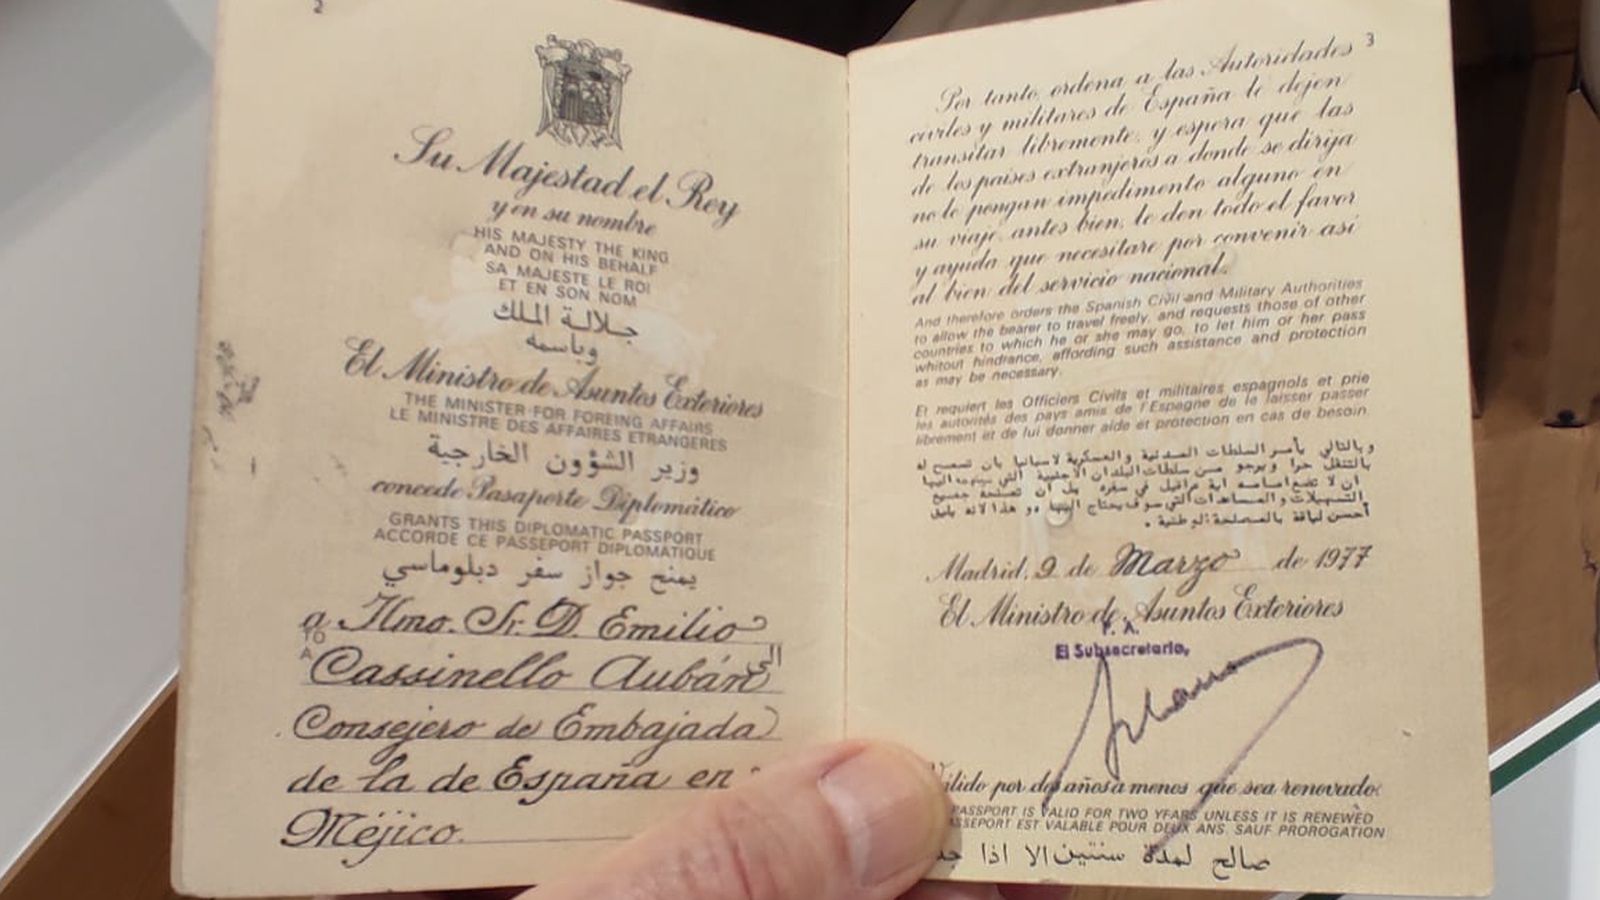 2
Su Majestad el Rey
y en su nombre
HIS MAJESTY THE KING
AND ON HIS BEHALF
SA MAJESTE LE ROI
ET EN SON NOM
جلالة الملك
وباسمه
El Ministro de Asuntos Exteriores
THE MINISTER FOR FOREING AFFAIRS
LE MINISTRE DES AFFAIRES ETRANGERES
وزير الشؤون الخارجية
concede Pasaporte Diplomático
GRANTS THIS DIPLOMATIC PASSPORT
ACCORDE CE PASSEPORT DIPLOMATIQUE
يمنح جواز سفر دبلوماسي
a Ilmo. Sr. D. Emilio
TO
A
Cassinello Aubán الى
Consejero de Embajada
de la de España en
Méjico.
3
Por tanto, ordena a las Autoridades
civiles y militares de España le dejen
transitar libremente, y espera que las
de los países extranjeros a donde se dirija
no le pongan impedimento alguno en
su viaje, antes bien, le den todo el favor
y ayuda que necesitare por convenir así
al bien del servicio nacional.
And therefore orders the Spanish Civil and Military Authorities
to allow the bearer to travel freely, and requests those of other
countries to which he or she may go, to let him or her pass
whitout hindrance, affording such assistance and protection
as may be necessary.
Et requiert les Officiers Civils et militaires espagnols et prie
les autorités des pays amis de l'Espagne de le laisser passer
librement et de lui donner aide et protection en cas de besoin.
وبالتالي يأمر السلطات المدنية والعسكرية لاسبانيا بان تسمح له
بالتنقل حرا ويرجو من سلطات البلدان الاجنبية التي
ان لا تضع امامه اية عراقيل في سفره بل ان تمنحه جميع
التسهيلات والمساعدات التي سوف يحتاج اليها
أحسن لياقة بالمصلحة الوطنية .
Madrid, 9 de Marzo de 1977
El Ministro de Asuntos Exteriores
P. A.
El Subsecretario,
lido por dos años a menos que sea renovado
PASSPORT IS VALID FOR TWO YEARS UNLESS IT IS RENEWED
SSEPORT EST VALABLE POUR DEUX ANS SAUF PROROGATION
صالح لمدة سنتين الا اذا